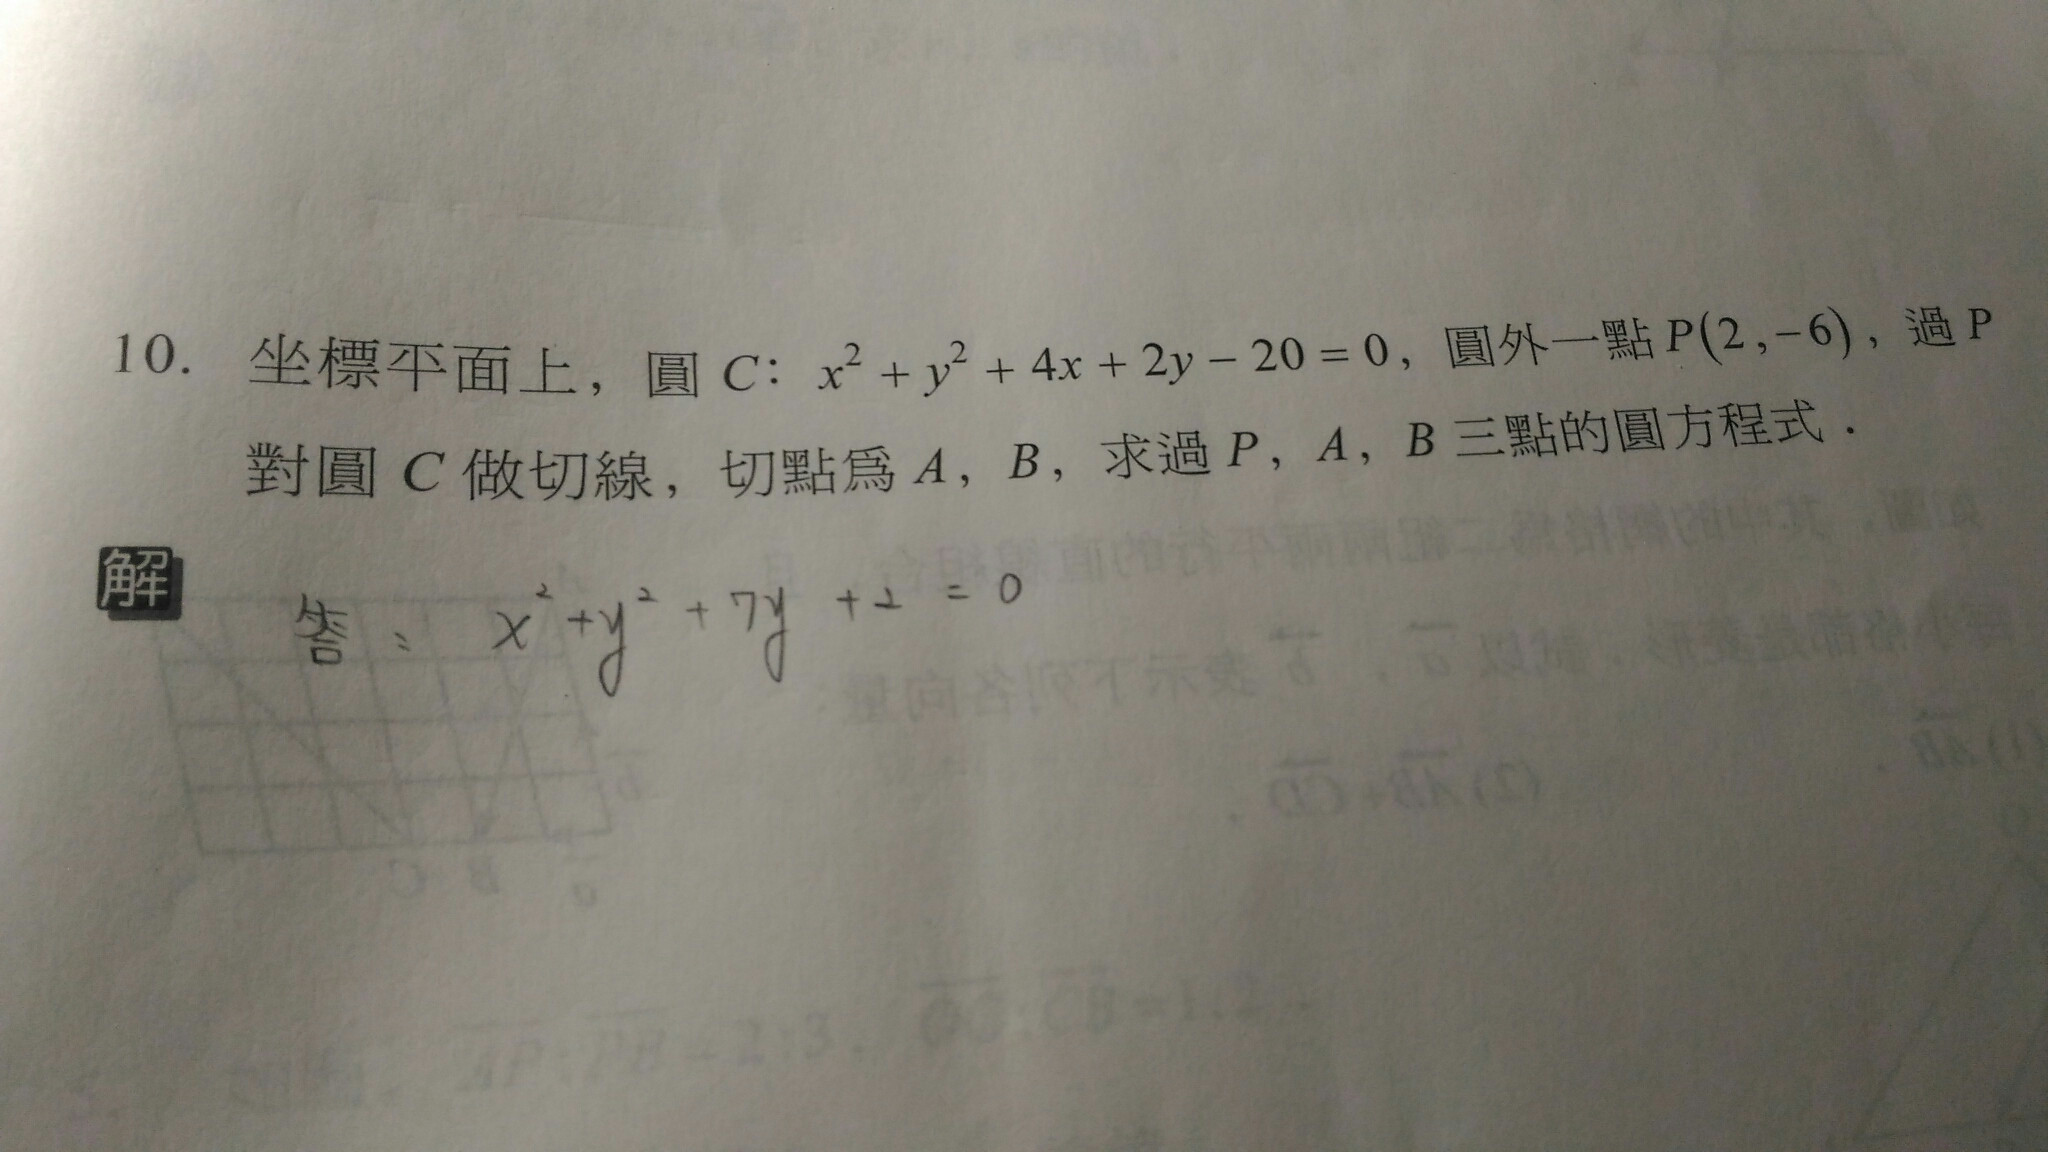 10. 坐標平面上，圓 C：x² + y² + 4x + 2y − 20 = 0，圓外一點 P(2,−6)，過 P
對圓 C 做切線，切點爲 A，B，求過 P，A，B 三點的圓方程式．
解
答： x² + y² + 7y + 2 = 0